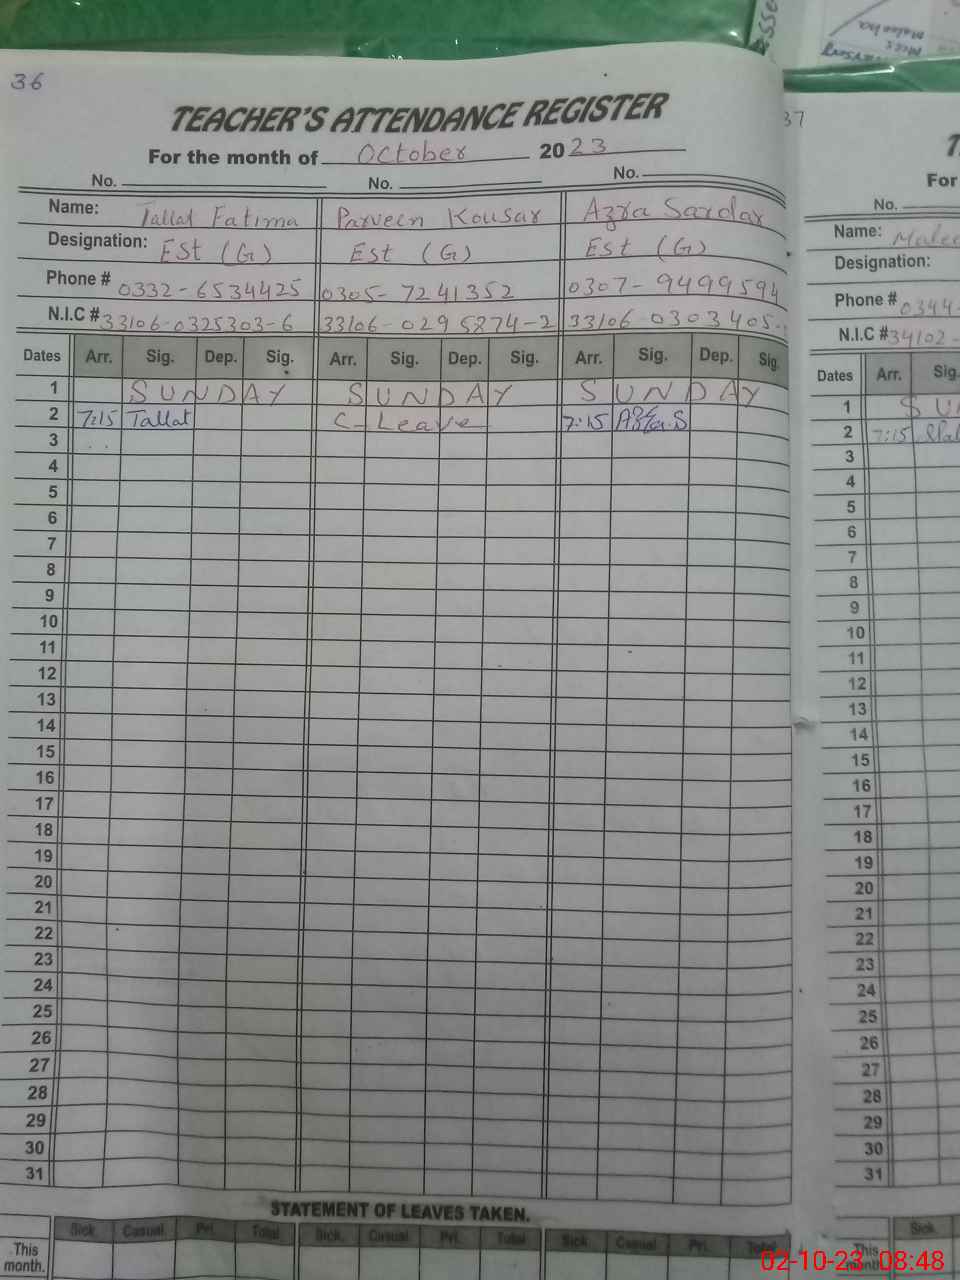 36
TEACHER'S ATTENDANCE REGISTER
For the month of October 2023
No. No. No.
Name: Tallat Fatima Parveen Kousar Azra Sardar
Designation: Est (G) Est (G) Est (G)
Phone # 0332-6534425 0305-7241352 0307-9499594
N.I.C # 33106-0325303-6 33106-0295874-2 33106-0303405-
Dates Arr. Sig. Dep. Sig. Arr. Sig. Dep. Sig. Arr. Sig. Dep. Sig.
1 SUNDAY SUNDAY SUNDAY
2 7:15 Tallat C-Leave 7:15 Azra.S
3
4
5
6
7
8
9
10
11
12
13
14
15
16
17
18
19
20
21
22
23
24
25
26
27
28
29
30
31
STATEMENT OF LEAVES TAKEN.
Sick. Casual. Pri. Total Sick. Casual. Pri. Total Sick. Casual. Pri. Total
This
month.
37
T
For
No.
Name: Malee
Designation:
Phone # 0344-
N.I.C # 34102-
Dates Arr. Sig.
1 SU
2 7:15
3
4
5
6
7
8
9
10
11
12
13
14
15
16
17
18
19
20
21
22
23
24
25
26
27
28
29
30
31
Sick.
This
month.
02-10-23 08:48